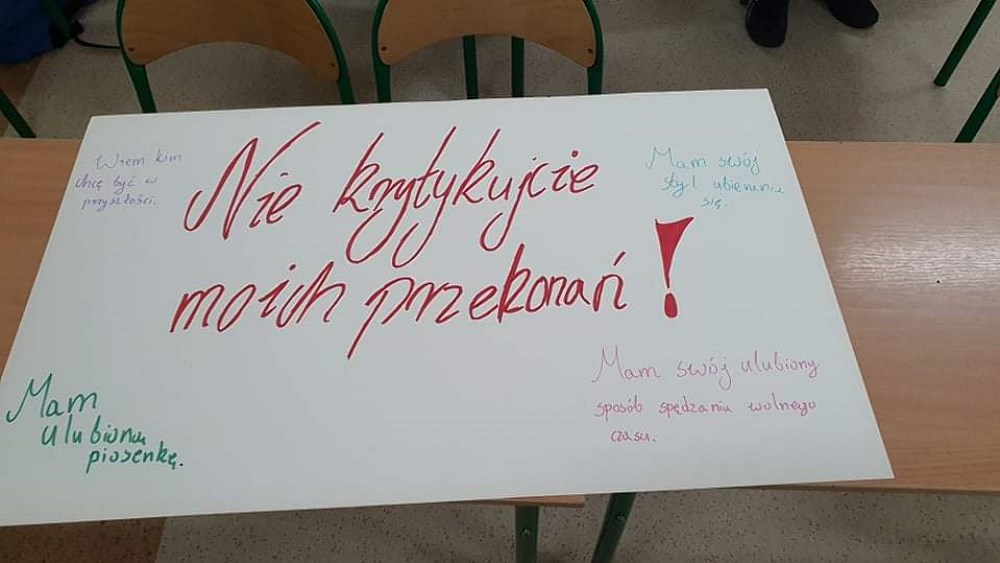 Wiem kim
chcę być w
przyszłości.
Nie krytykujcie
moich przekonań!
Mam swój
styl ubierania
się.
Mam
ulubioną
piosenkę.
Mam swój ulubiony
sposób spędzania wolnego
czasu.